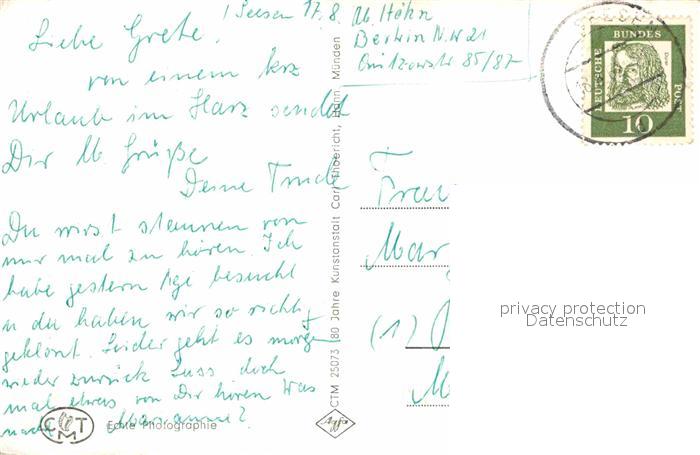 Seesen 17.8.
Abs. Höhn
Berlin N.W 21
Quitzowstr 85/87
Liebe Grete.
von einem krz
Urlaub im Harz sendet
Dir lb. Grüße
Deine Trude
Du wirst staunen von
mir mal zu hören. Ich
habe gestern Age besucht
u du haben wir so richtig
geklönt. Leider geht es morgen
wieder zurück Lass doch
mal etwas von Dir hören Was
macht Marianne?
Frau
Mar
(1)
M
DEUTSCHE BUNDESPOST
10
CTM 25073 80 Jahre Kunstanstalt Carl Thoericht, Hann. Münden
CTM
Echte Photographie
Agfa
privacy protection
Datenschutz